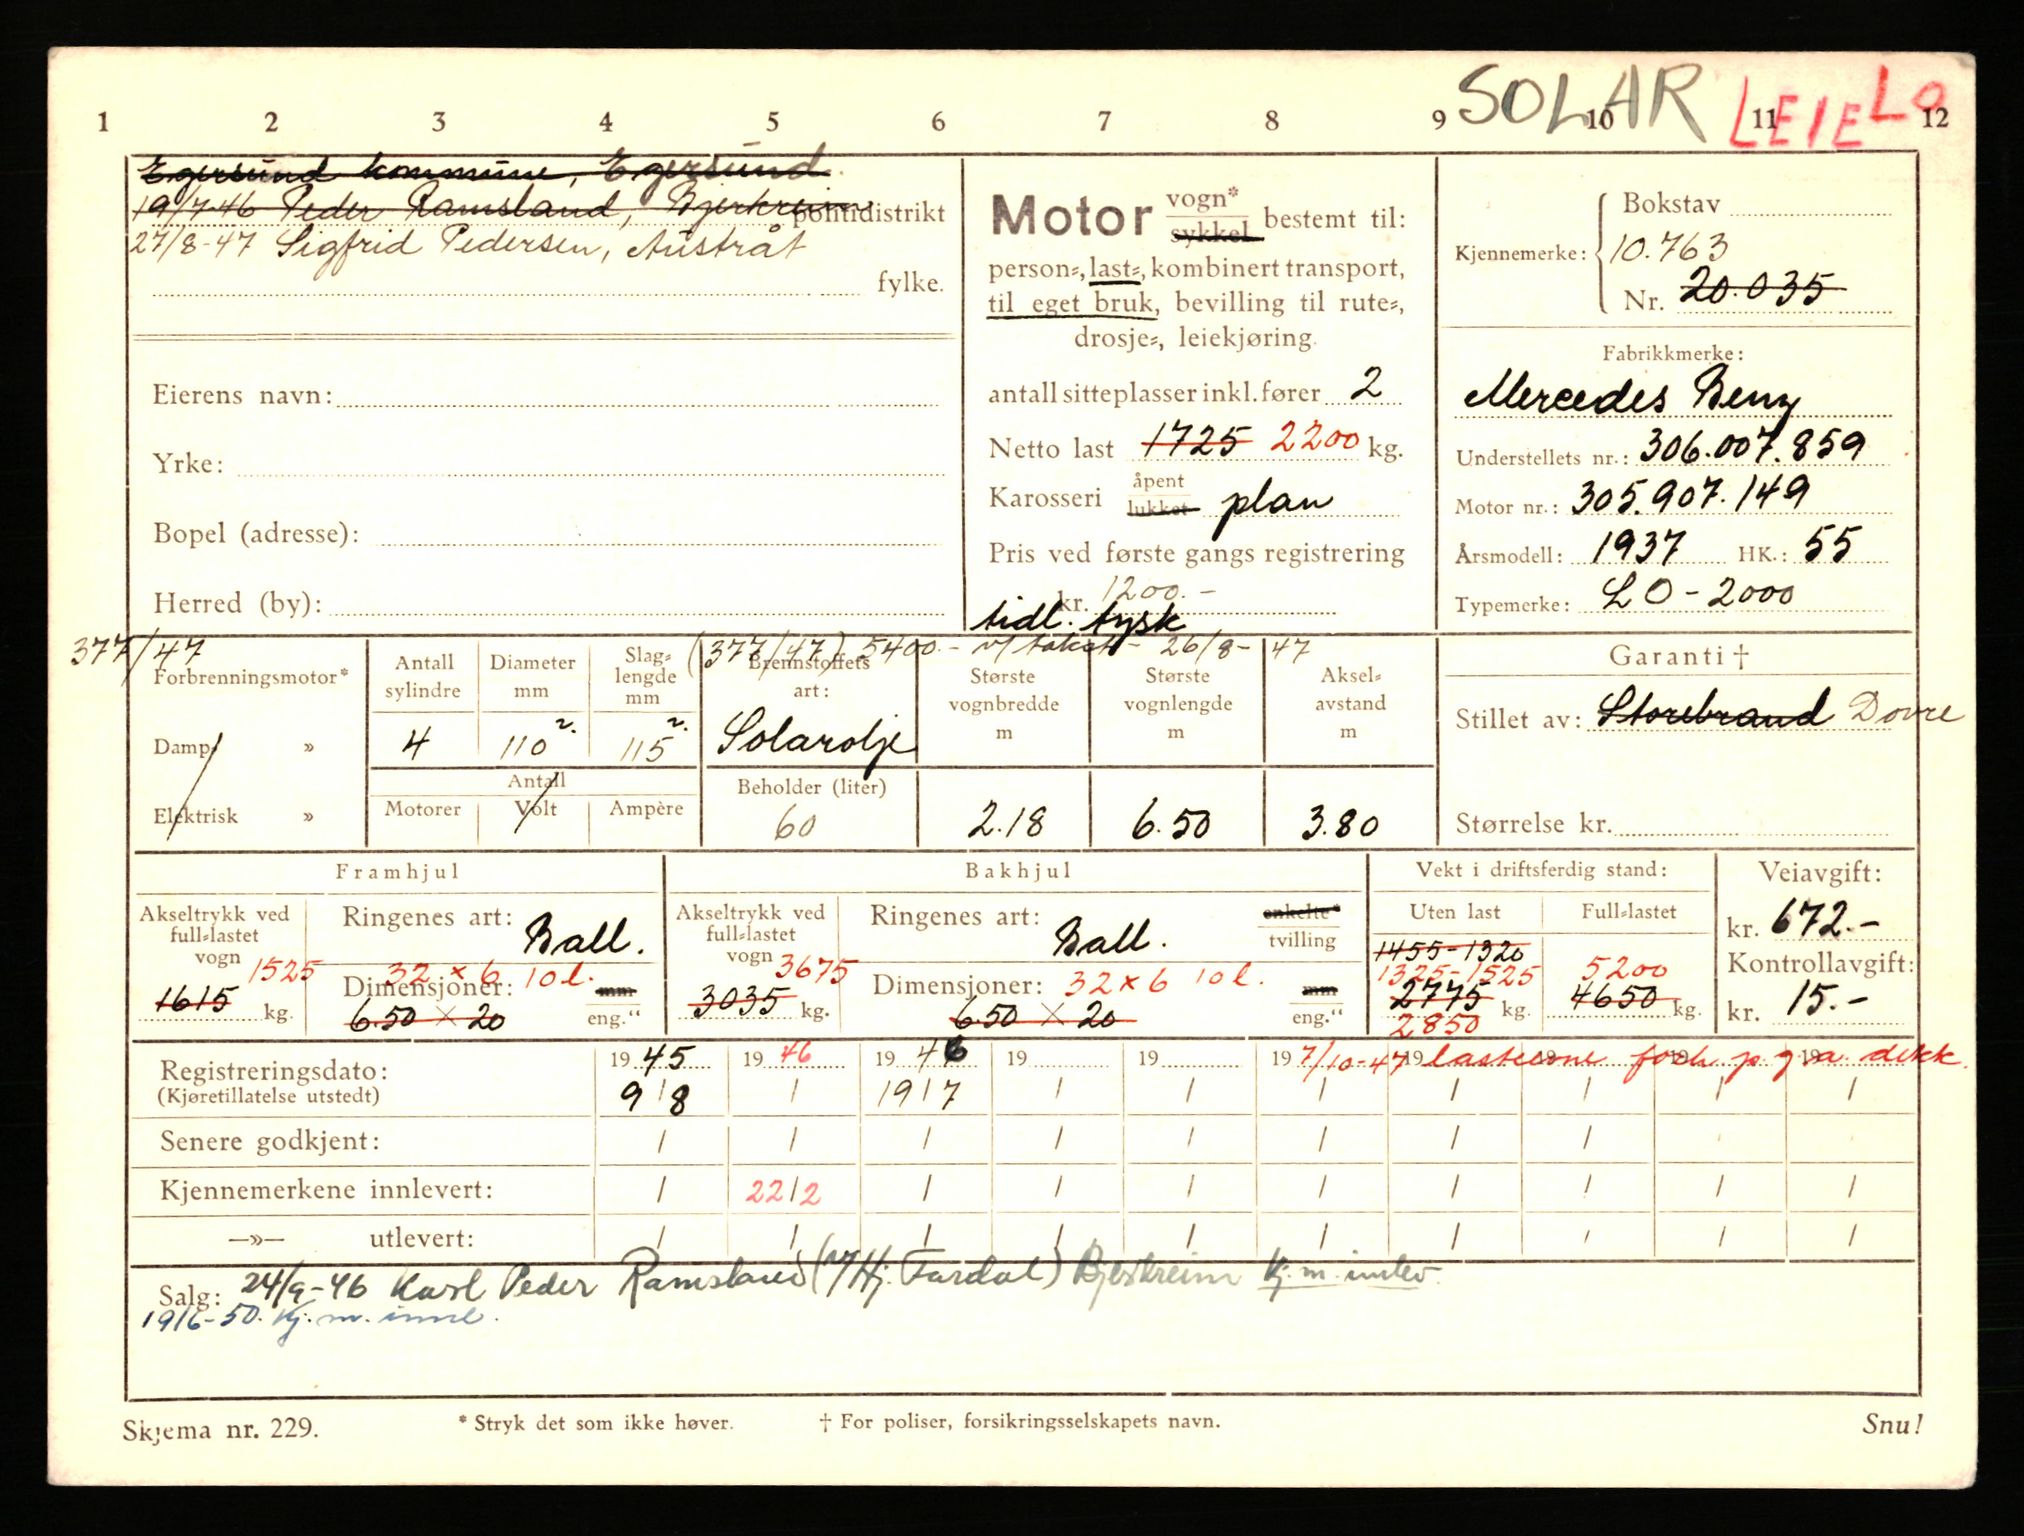 SOLAR LEIE LO
1 2 3 4 5 6 7 8 9 10 11 12
Egersund kommune, Egersund.
19/7-46 Peder Ramsland, Bjerkreim politidistrikt
27/8-47 Sigfrid Pedersen, Austråt
fylke.
Eierens navn:
Yrke:
Bopel (adresse):
Herred (by):
Motor vogn* sykkel bestemt til:
person-, last-, kombinert transport,
til eget bruk, bevilling til rute-,
drosje-, leiekjøring.
antall sitteplasser inkl. fører 2
Netto last 1725 2200 kg.
Karosseri åpent lukket plan
Pris ved første gangs registrering
kr. 1200.-
tidl. tysk
Kjennemerke: Bokstav
10.763
Nr. 20.035
Fabrikkmerke:
Mercedes Benz
Understellets nr.: 306.007.859
Motor nr.: 305.907.149
Årsmodell: 1937 HK.: 55
Typemerke: LO-2000
377/47 (377/47) 5400.- v/ takst - 26/8-47
Forbrenningsmotor*
Damp »
Elektrisk »
Antall sylindre
4
Diameter mm
110²·
Slaglengde mm
115²·
Antall
Motorer Volt Ampère
Brennstoffets art:
Solarolje
Beholder (liter)
60
Største vognbredde m
2.18
Største vognlengde m
6.50
Akselavstand m
3.80
Garanti †
Stillet av: Storebrand Dovre
Størrelse kr.
Framhjul
Akseltrykk ved
full-lastet
vogn 1525
1615 kg.
Ringenes art: Ball.
32 x 6 10 l.
Dimensjoner: mm
6.50 x 20 eng."
Bakhjul
Akseltrykk ved
full-lastet
vogn 3675
3035 kg.
Ringenes art: Ball. enkelte* tvilling
Dimensjoner: 32 x 6 10 l. mm
6.50 x 20 eng."
Vekt i driftsferdig stand:
Uten last Full-lastet
1455-1320
1325-1525 5200
2775 kg. 4650 kg.
2850
Veiavgift:
kr. 672.-
Kontrollavgift:
kr. 15.-
Registreringsdato: 19 45 19 46 19 46 19 19 19 7/10-47 19 lasteevne forh. p g a dekk.
(Kjøretillatelse utstedt) 9/8 / 19/7 / / / / / / /
Senere godkjent:
Kjennemerkene innlevert: 22/2
—»— utlevert:
Salg: 24/9-46 Karl Peder Ramsland (v/ Hj. Tardal) Bjerkreim Kj.m. innlev.
19/6-50. Kj. m. innl.
Skjema nr. 229. * Stryk det som ikke høver. † For poliser, forsikringsselskapets navn. Snu!